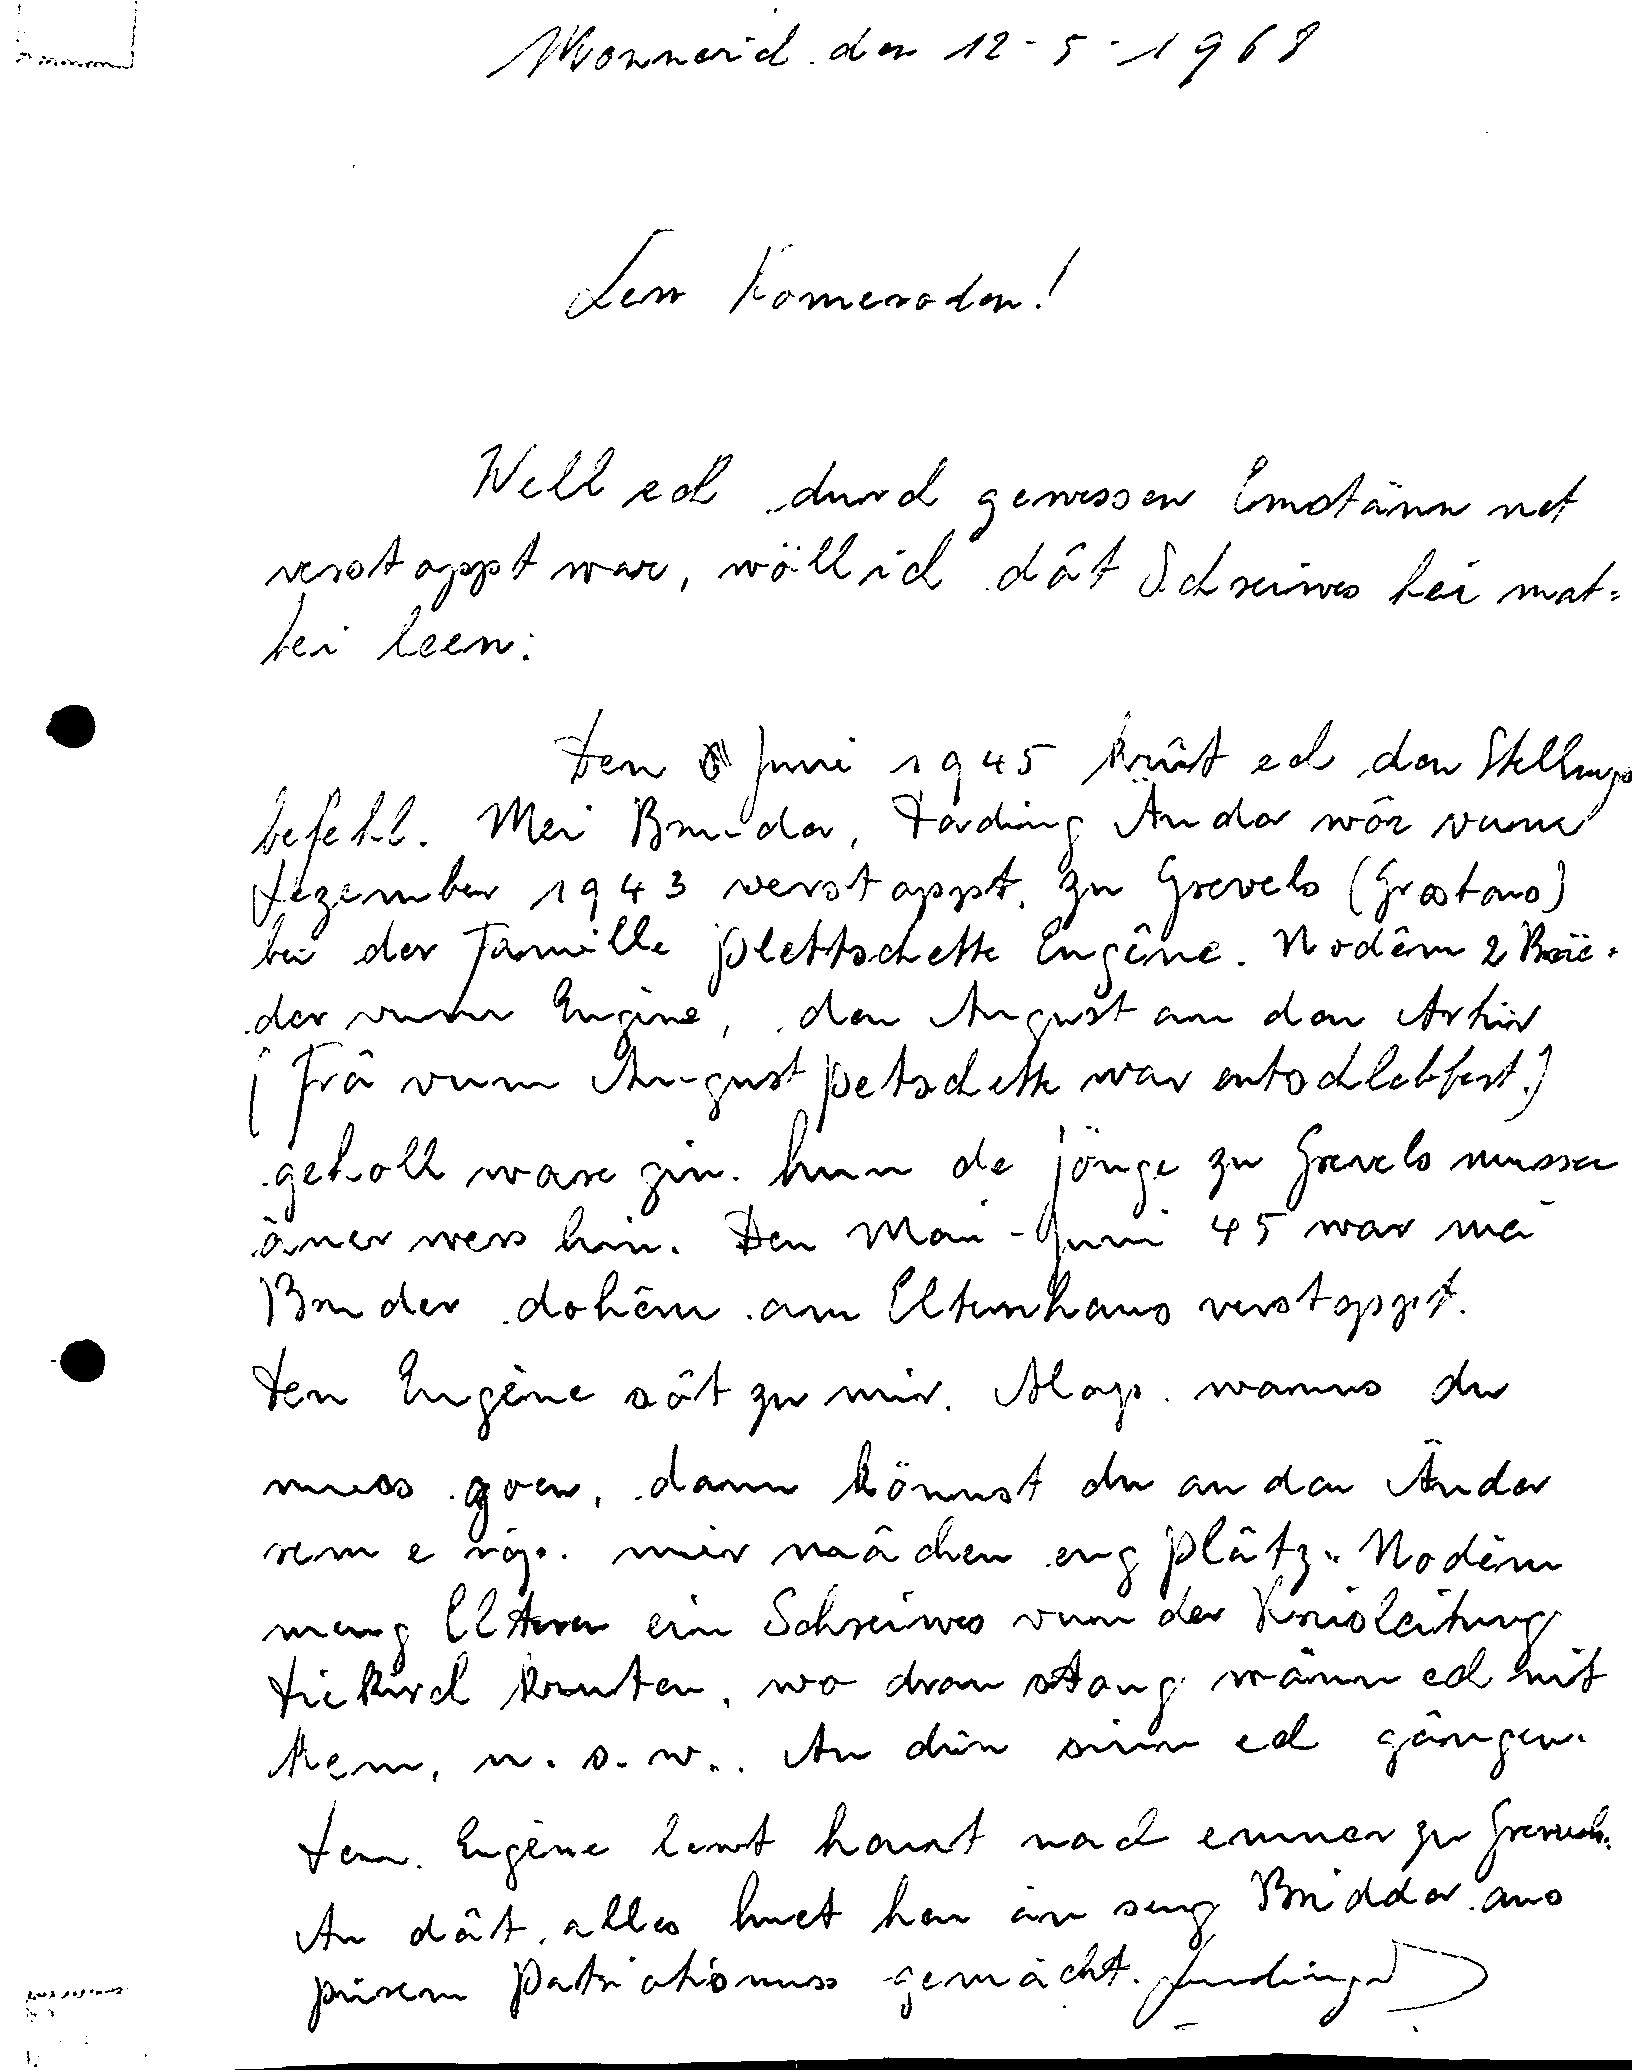 Monnerid den 12-5-1968
Lew Komeroden!
Well ech durch gewessen Emstänn net
verstoppt war, wöll ich dât Schreiwes hei mat=
bei leen:
Den Juni 1945 krût ech den Stellungs
befehl. Mei Bruder, Änder wôr vum
Dezember 1943 verstoppt, zu Grevels (Grostaus)
bei der Famille Plettschette Eugêne. Nodêm 2 Brië-
der vum Eugêne, den August an den Arthur
(Frâ vum August Petschette war entschlebfert.)
geholl ware gin. hun de jönge zu Grevels mussen
âner wers hin. Den Mai-Juni 45 war mei
Bruder dohêm am Elternhaus verstoppt.
Den Eugêne sôt zu mir. Alop. wanns du
muss goen, dann könnst du an den Änder
rem e rop. mir mâchen eng Plâtz. Nodêm
meng Elteren ein Schreiwes vun der Kreisleitung
Diekirch kruten, wo dran stong wänn ech nit
kem, u. s. w.. An dün sinn ech gângen.
Den Eugêne lewt haut nach emmer zu Grevels.
An dât alles huet hen an seng Bridder aus
purem Patriotismuss gemâcht.